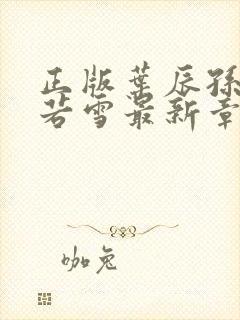 正版叶辰孙
若雪最新章
咖兔